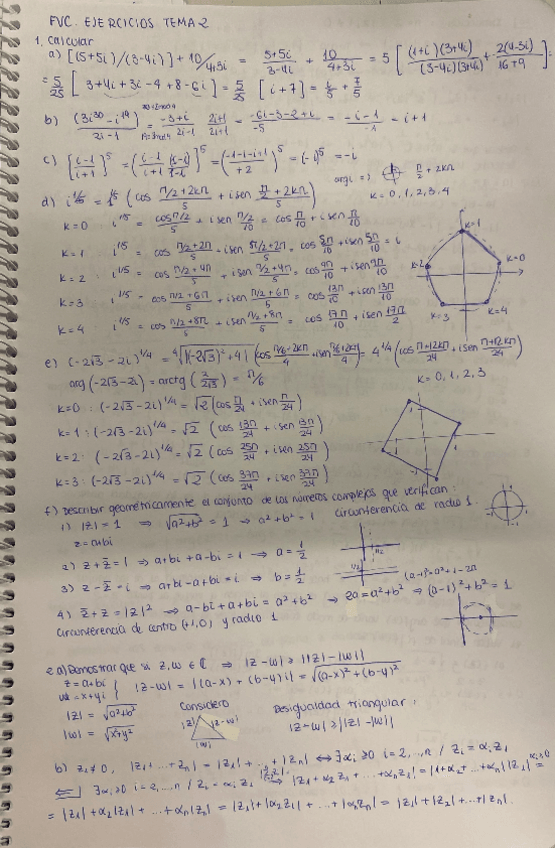 FVC. EJERCICIOS TEMA 2
1. Calcular
a) [(5+5i)/(3-4i)] + 10/4+3i = 5+5i/3-4i + 10/4+3i = 5 [ (1+i)(3+4i)/(3-4i)(3+4i) + 2(4-3i)/16+9 ] =
= 5/25 [ 3+4i+3i-4+8-6i ] = 5/25 [ i+7 ] = i/5 + 7/5
b) (3i^30 - i^19)/2i-1 = -3+i/2i-1 2i+1/2i+1 = -6i-3-2+i/-5 = -i-1/-1 = i+1
c) [i-1/i+1]^5 = (i-1/i+1 (1-i)/1-i)^5 = (-1-1-i+i/+2)^5 = (-i)^5 = -i
arg i => π/2 + 2kπ
d) i^1/5 = 1^1/5 (cos π/2+2kπ/5 + i sen π/2+2kπ/5)
k = 0, 1, 2, 3, 4
k=0 : i^1/5 = cos π/2/5 + i sen π/2/10 = cos π/10 + i sen π/10
k=1 : i^1/5 = cos π/2+2π/5 - i sen 5π/2+2π/5 = cos 5π/10 + i sen 5π/10 = i
k=2 : i^1/5 = cos π/2+4π/5 + i sen π/2+4π/5 = cos 9π/10 + i sen 9π/10
k=3 : i^1/5 = cos π/2+6π/5 + i sen π/2+6π/5 = cos 13π/10 + i sen 13π/10
k=4 : i^1/5 = cos π/2+8π/5 + i sen π/2+8π/5 = cos 17π/10 + i sen 17π/2
k=1
k=2
k=0
k=3
k=4
e) (-2√3 - 2i)^1/4 = ∜|(-2√3)²+4| (cos π/6+2kπ/4 + i sen π/6+2kπ/4) = 4^1/4 (cos π+12kπ/24 + i sen π+12kπ/24)
arg(-2√3-2i) = arctg (2/2√3) = π/6
k = 0, 1, 2, 3
k=0 : (-2√3-2i)^1/4 = √2 (cos π/24 + i sen π/24)
k=1 : (-2√3-2i)^1/4 = √2 (cos 13π/24 + i sen 13π/24)
k=2 : (-2√3-2i)^1/4 = √2 (cos 25π/24 + i sen 25π/24)
k=3 : (-2√3-2i)^1/4 = √2 (cos 37π/24 + i sen 37π/24)
f) Describir geométricamente el conjunto de los números complejos que verifican:
1) |z| = 1 ⇒ √a²+b² = 1 ⇒ a²+b² = 1 circunferencia de radio 1.
z=a+bi
2) z+z̄ = 1 ⇒ a+bi+a-bi = 1 → a = 1/2
3) z-z̄ = i ⇒ a+bi-a+bi = i ⇒ b = 1/2
(a-1)²=a²+1-2a
4) z̄+z = |z|² ⇒ a-bi+a+bi = a²+b² → 2a = a²+b² ⇒ (a-1)²+b² = 1
circunferencia de centro (+1,0) y radio 1
2 a) Demostrar que si z, w ∈ ℂ ⇒ |z-w| ≥ ||z|-|w||
z=a+bi
w=x+yi } |z-w| = |(a-x)+(b-y)i| = √(a-x)²+(b-y)²
|z| = √a²+b²
|w| = √x²+y²
Considero
|z| |z-w|
|w|
Desigualdad triangular:
|z-w| ≥ ||z|-|w||
b) z₁≠0, |z₁+...+zₙ| = |z₁|+...+|zₙ| ⇔ ∃αᵢ≥0 i=2,...,n / zᵢ=αᵢz₁
⇐] ∃αᵢ≥0 i=2,...,n / zᵢ=αᵢz₁ ⇒ |z₁+α₂z₁+...+αₙz₁| = |1+α₂+...+αₙ||z₁| =
= |z₁|+α₂|z₁|+...+αₙ|z₁| = |z₁|+|α₂z₁|+...+|αₙz₁| = |z₁|+|z₂|+...+|zₙ|.